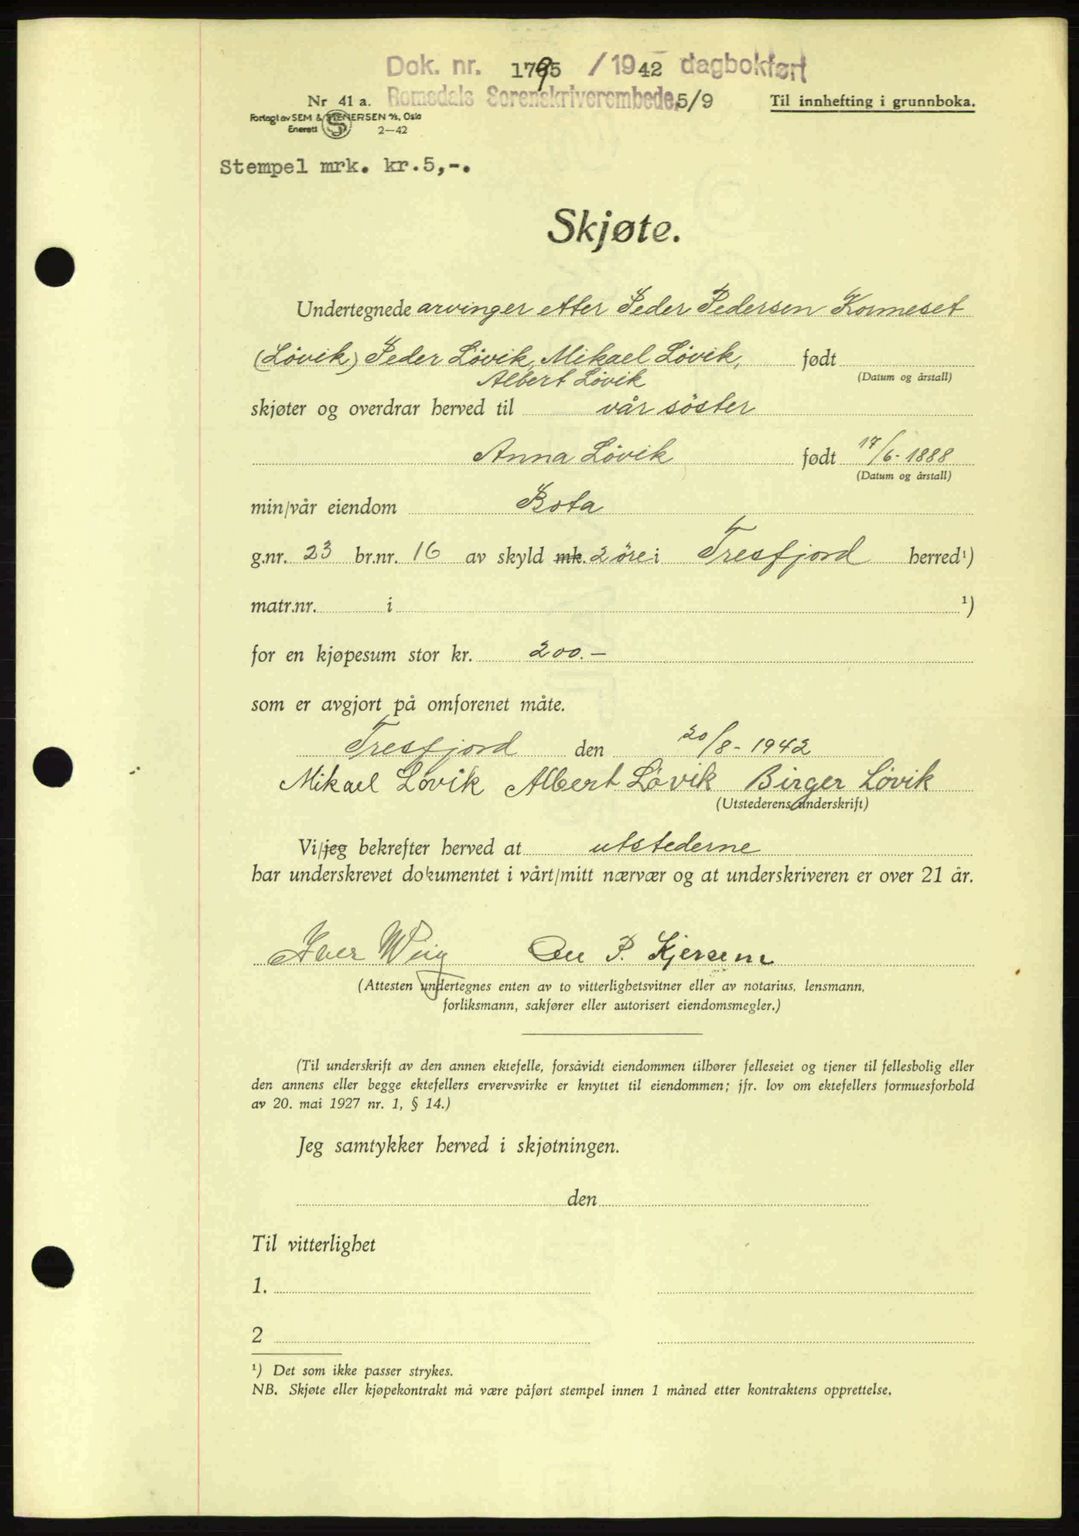 Dok. nr. 1795 / 1942 dagbokført
Nr 41 a. Romsdals Sorenskriverembede, 5/9 Til innhefting i grunnboka.
Forlagt av SEM & STENERSEN A/S, Oslo
Enerett 2—42
Stempel mrk. kr.5,-.
Skjøte.
Undertegnede arvinger etter Peder Pedersen Kormeset
(Løvik) Peder Løvik, Mikael Løvik, født
Albert Løvik (Datum og årstall)
skjøter og overdrar herved til vår søster
Anna Løvik født 17/6-1888
(Datum og årstall)
min/vår eiendom Bota
g.nr. 23 br.nr. 16 av skyld mk. 2 öre i Tresfjord herred¹)
matr.nr. i ¹)
for en kjøpesum stor kr. 200.-
som er avgjort på omforenet måte.
Tresfjord den 20/8-1942
Mikael Løvik Albert Løvik Birger Løvik
(Utstederens underskrift)
Vi/jeg bekrefter herved at utstederne
har underskrevet dokumentet i vårt/mitt nærvær og at underskriveren er over 21 år.
Iver Wiig Ole P. Kjersem
(Attesten undertegnes enten av to vitterlighetsvitner eller av notarius, lensmann,
forliksmann, sakfører eller autorisert eiendomsmegler.)
(Til underskrift av den annen ektefelle, forsåvidt eiendommen tilhører felleseiet og tjener til fellesbolig eller
den annens eller begge ektefellers ervervsvirke er knyttet til eiendommen; jfr. lov om ektefellers formuesforhold
av 20. mai 1927 nr. 1, § 14.)
Jeg samtykker herved i skjøtningen.
den
Til vitterlighet
1.
2
¹) Det som ikke passer strykes.
NB. Skjøte eller kjøpekontrakt må være påført stempel innen 1 måned etter kontraktens opprettelse.